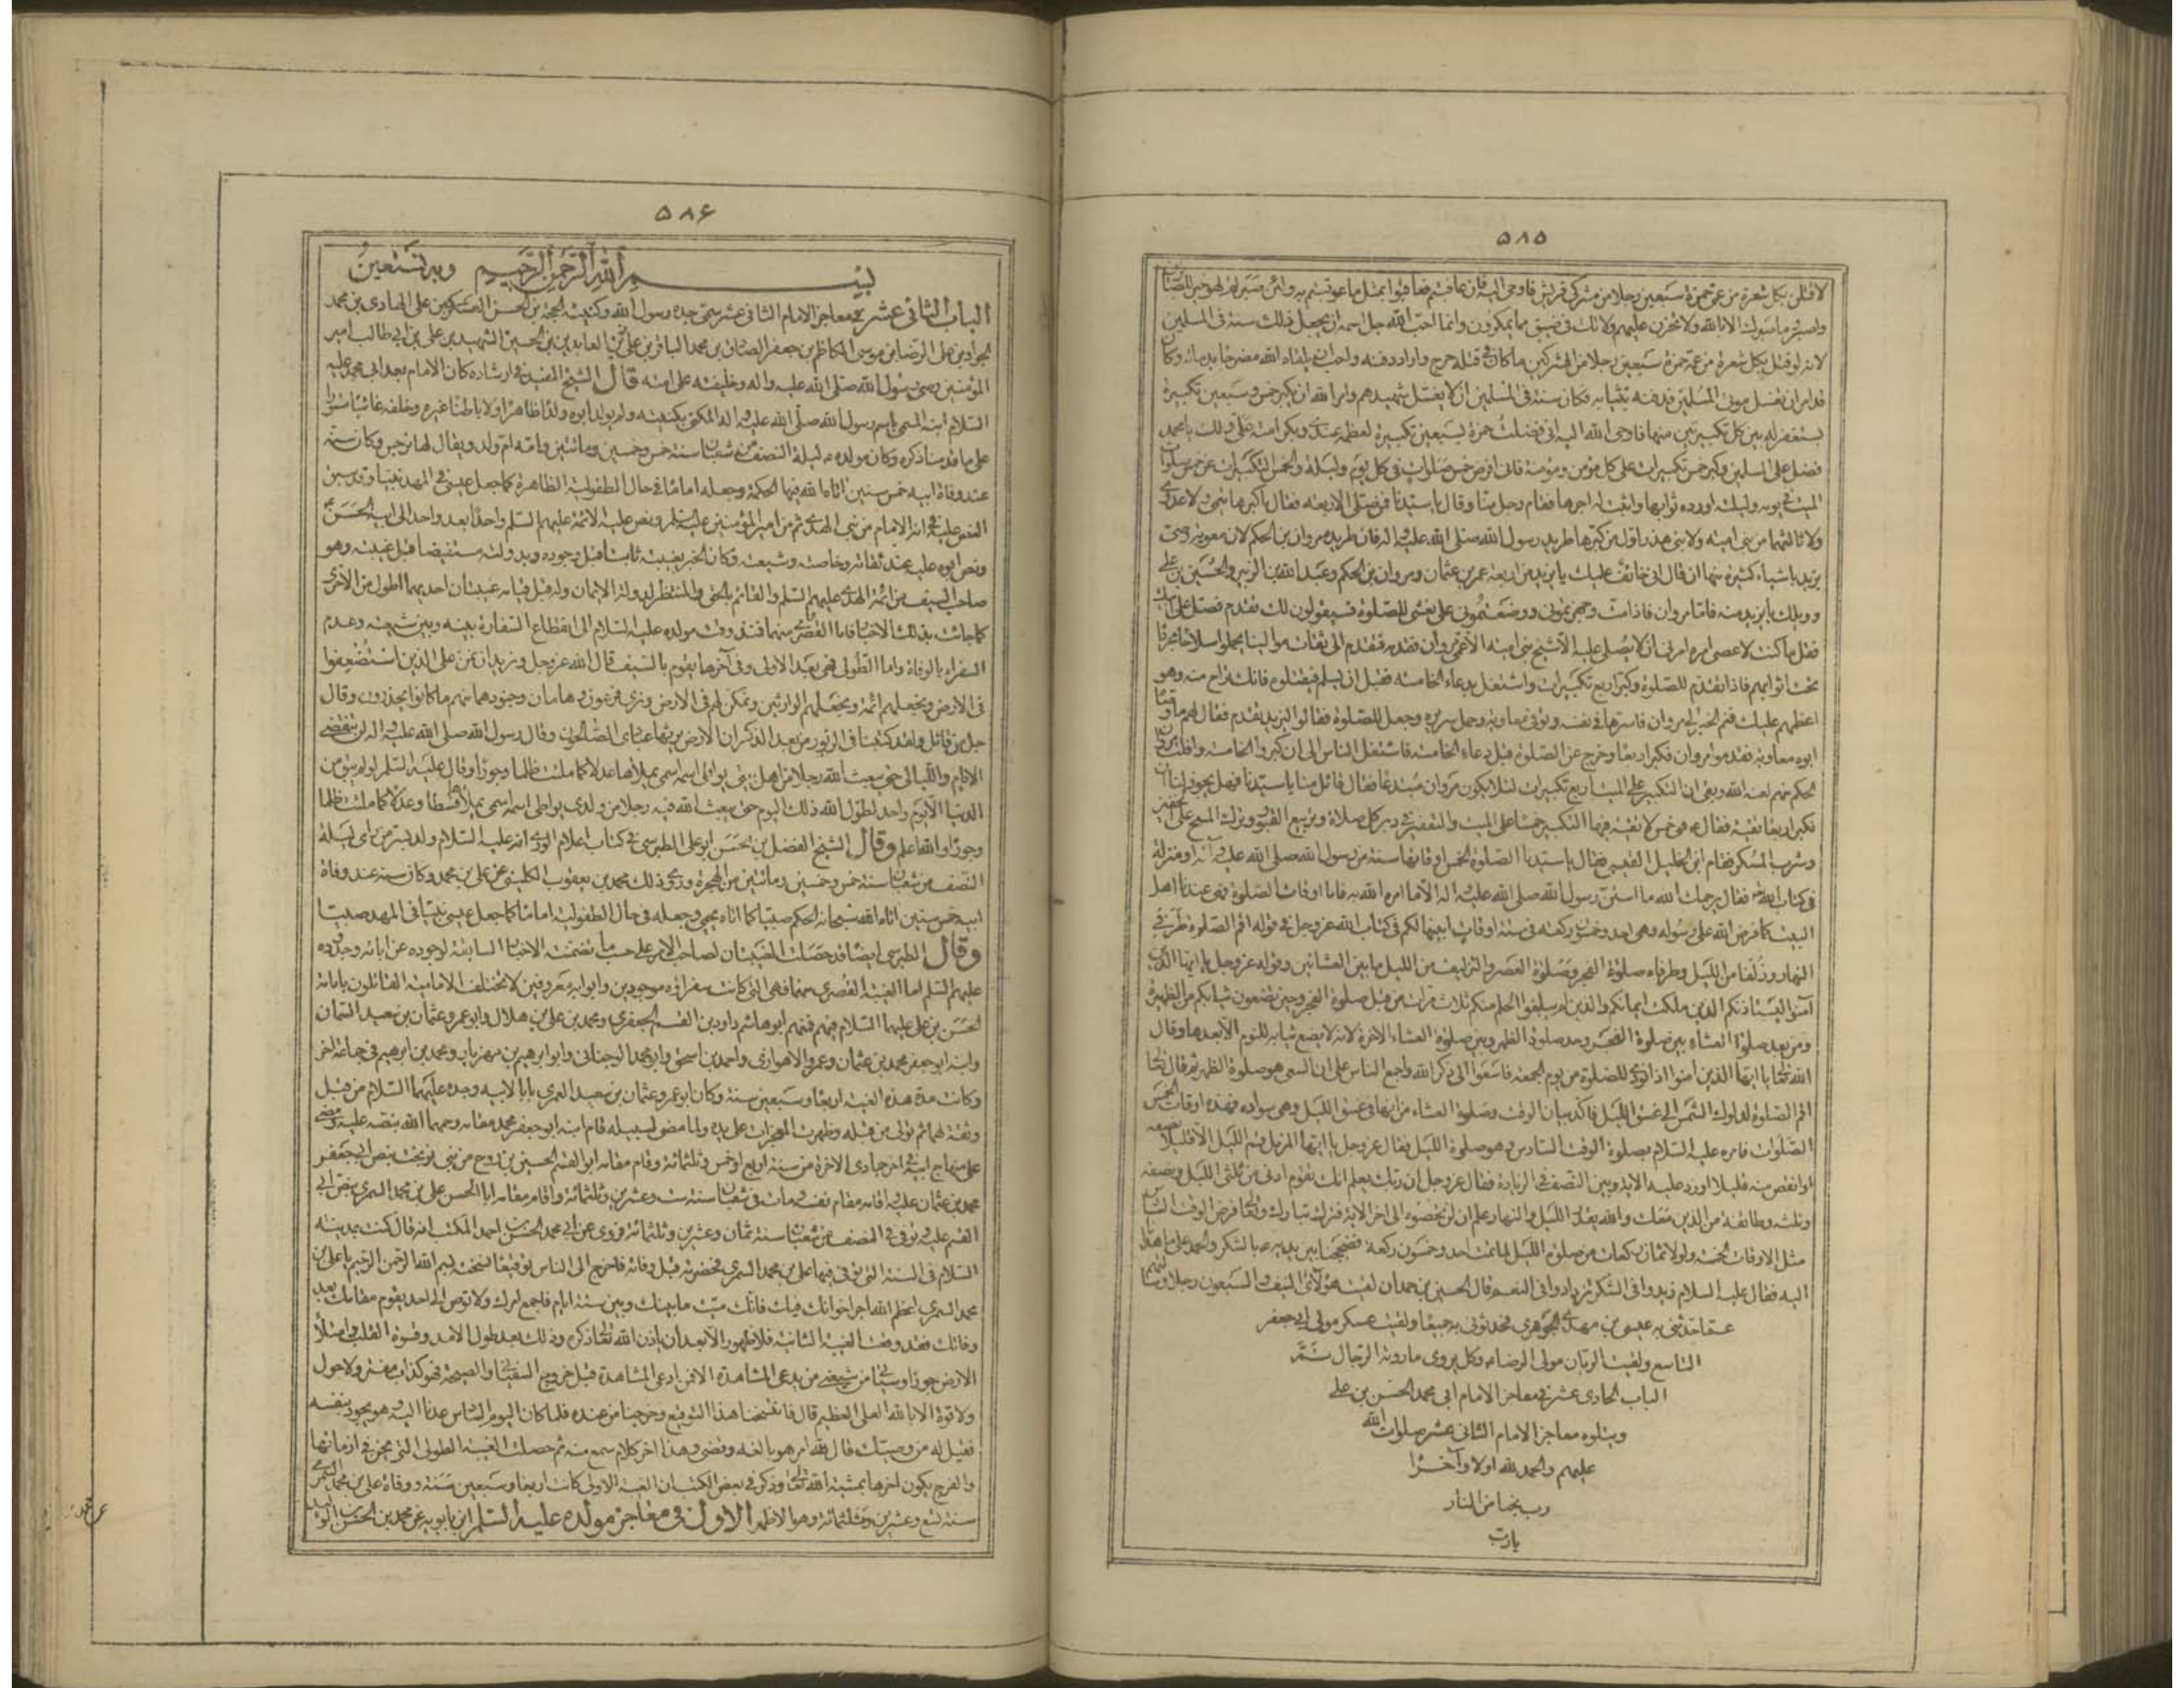 ٥٨٥
لاقتلن بكل شعرة من عمي حمزة سبعين رجلا من مشركي قريش فاوحى الله فان عاقبتم فعاقبوا بمثل ما عوقبتم به ولئن صبرتم لهو خير للصابرين
واصبر وما صبرك الا بالله ولا تحزن عليهم ولا تك في ضيق مما يمكرون وانما احب الله جل اسمه ان يجعل ذلك سنة في المسلمين
لانه لو قتل بكل شعرة من عمه حمزة سبعين رجلا من المشركين ما كان في قتله حرج واراد دفنه واحب ان يلقاه الله مضرجا بدمائه وكان
قد امر ان يغسل موتى المسلمين فدفنه بثيابه فكان سنة في المسلمين ان لا يغسل شهيدهم وامر الله ان يكبر خمس وسبعين تكبيرة
يستغفر له بين كل تكبيرتين منها فاوحى الله اليه اني فضلت حمزة بسبعين تكبيرة لعظمه عندي وبكرامته علي ولك يا محمد
فضل على المسلمين وكبر خمس تكبيرات على كل مؤمن ومؤمنة فاني افرض خمس صلوات في كل يوم وليلة والخمس التكبيرات عن خمس صلوات
الميت في يومه وليلته اورده ثوابها واثبت له اجرها فقام رجل منا وقال يا سيدنا فمن صلى الاربعة فقال ما كبرها تيمي ولا عدوي
ولا ثالثهما من بني امية ولا بني هند اول من كبرها طريد رسول الله صلى الله عليه واله فان طريده مروان بن الحكم لان معوية وصى
يزيد باشياء كثيرة منها ان قال اني خائف عليك يا يزيد من اربعة عمر بن عثمان ومروان بن الحكم وعبد الله بن الزبير والحسين بن علي
وويلك يا يزيد منه فاما مروان فاذا مت وجهزتموني ووضعتموني على نعشي للصلوة فسيقولون لك تقدم فصل على ابيك
فقل ما كنت لاعصي امره امرني ان لا يصلي عليه الا شيخ بني امية الاعمى مروان فقدمه وتقدم الى ثقات موالينا يحملوا سلاحا مجردا
تحت اثوابهم فاذا تقدم للصلوة وكبر اربع تكبيرات واشتغل بدعاء الخامسة فقبل ان يسلم فيقتلوه فانك تراح منه وهو
اعظمهم عليك فنم الخبر الى مروان فاسرها في نفسه وتوفي معاوية وحمل سريره وجعل للصلوة فقالوا ليزيد تقدم فقال لهم ما وصاه
ابوه معاوية فقدموا مروان فكبر اربعا وخرج عن الصلوة قبل دعاء الخامسة فاشتغل الناس الى ان كبروا الخامسة وافلت مروان بن
الحكم منهم لعنه الله وبقي ان التكبير على الميت اربع تكبيرات لئلا يكون مروان مبتدعا فقال قائل منا يا سيدنا فهل يجوز لنا ان
نكبر اربعا تقية فقال هو خمس لا تقية فيها التكبير خمسا على الميت والتعفير في دبر كل صلاة وتربيع القبور وترك المسح على الخفين
وشرب المسكر فقام ابن الخليل القيسي فقال يا سيدنا الصلوة الخمس اوقاتها سنة من رسول الله صلى الله عليه وآله او منزلة
في كتاب الله فقال يرحمك الله ما استن رسول الله صلى الله عليه اله الا ما امره الله به فاما اوقات الصلوة فهي عندنا اهل
البيت كما فرض الله على رسوله وهي احد وخمسون ركعة في ستة اوقات ابينها لكم في كتاب الله عز وجل في قوله اقم الصلوة طرفي
النهار وزلفا من الليل وطرفاه صلوة الفجر وصلوة العصر والتزليف من الليل ما بين العشائين وقوله عز وجل يا ايها الذين
آمنوا ليستاذنكم الذين ملكت ايمانكم والذين لم يبلغوا الحلم منكم ثلاث مرات من قبل صلوة الفجر وحين تضعون ثيابكم من الظهيرة
ومن بعد صلوة العشاء بين صلوة الفجر وحد صلوة الظهر وبين صلوة العشاء الاخرة لانه لا يضع ثيابه للنوم الا بعدها وقال
الله تعالى يا ايها الذين امنوا اذا نودي للصلوة من يوم الجمعة فاسعوا الى ذكر الله واجمع الناس على ان السعي هو صلوة الظهر ثم قال تعالى
اقم الصلوة لدلوك الشمس الى غسق الليل فاكد بيان الوقت وصلوة العشاء من انها في غسق الليل وهي سواده فهذه اوقات الخمس
الصلوات فامره عليه السلام بصلوة الوقت السادس وهو صلوة الليل فقال عز وجل يا ايها المزمل قم الليل الا قليلا نصفه
او انقص منه قليلا او زد عليه الاية وبين النصف في الزيادة فقال عز وجل ان ربك يعلم انك تقوم ادنى من ثلثي الليل ونصفه
وثلثه وطائفة من الذين معك والله يقدر الليل والنهار علم ان لن تحصوه الى اخر الاية فترك تبارك وتعالى فرض الوقت السادس
مثل الاوقات الخمسة ولولا ثمان ركعات من صلوة الليل لما تمت احد وخمسون ركعة فضججنا بين يديه ع بالشكر والحمد على ما هدانا
اليه فقال عليه السلام زيدوا في الشكر تزدادوا في النعم قال الحسين بن حمدان لقيت هؤلاء النيف والسبعون رجلا وسألتهم
عما حدثني به عيسى بن مهدي الجوهري فحدثوني به جميعا ولقيت عسكر مولى ابي جعفر
التاسع ولقيت الريان مولى الرضاء وكل يروي ما روته الرجال تم
الباب الحادي عشر في معاجز الامام ابي محمد الحسن بن علي
ويتلوه معاجز الامام الثاني عشر صلوات الله
عليهم والحمد لله اولا وآخرا
رب نجنا من النار
يا رب
٥٨۶
بسم الله الرحمن الرحيم وبه نستعين
الباب الثاني عشر في معاجز الامام الثاني عشر سمي جده رسول الله وكنيته الحجة بن الحسن العسكري بن علي الهادي بن محمد
الجواد بن علي الرضا بن موسى الكاظم بن جعفر الصادق بن محمد الباقر بن علي زين العابدين بن الحسين الشهيد بن علي بن ابي طالب امير
المؤمنين وصي رسول الله صلى الله عليه واله وخليفته على امته قال الشيخ المفيد في ارشاده كان الامام بعد ابي محمد عليه
السلام ابنه المسمى باسم رسول الله صلى الله عليه اله المكنى بكنيته ولم يخلف ابوه ولدا ظاهرا ولا باطنا غيره وخلفه غائبا مستورا
على ما قدمنا ذكره وكان مولده ع ليلة النصف من شعبان سنة خمس وخمسين ومائتين وامه ام ولد ويقال لها نرجس وكان سنه
عند وفاة ابيه خمس سنين اتاه الله فيها الحكمة وجعله اماما في حال الطفولية الظاهرة كما جعل عيسى في المهد نبيا وقد سبق
النص عليه في انه الامام من نبي الهدى ثم من امير المؤمنين عليه السلم ونص عليه الائمة عليهم السلم واحدا بعد واحد الى ابيه الحسن ع
ونص ابوه عليه عند ثقاته وخاصته وشيعته وكان الخبر بغيبته ثابت قبل وجوده وبدولته مستفيضا قبل غيبته وهو
صاحب السيف من ائمة الهدى عليهم السلم والقائم بالحق والمنتظر لدولة الايمان وله قبل قيامه غيبتان احديهما اطول من الاخرى
كما جائت بذلك الاخبار فاما القصرى منهما فمنذ وقت مولده عليه السلام الى انقطاع السفارة بينه وبين شيعته وعدم
السفراء بالوفاة واما الطولى فهي بعد الاولى وفي آخرها يقوم بالسيف قال الله عز وجل ونريد ان نمن على الذين استضعفوا
في الارض ونجعلهم ائمة ونجعلهم الوارثين ونمكن لهم في الارض ونري فرعون وهامان وجنودهما منهم ما كانوا يحذرون وقال
جل من قائل ولقد كتبنا في الزبور من بعد الذكر ان الارض يرثها عبادي الصالحون وقال رسول الله صلى الله عليه اله لن تنقضي
الايام والليالي حتى يبعث الله رجلا من اهل بيتي يواطي اسمه اسمي يملاها عدلا كما ملئت ظلما وجورا وقال عليه السلم لو لم يبق من
الدنيا الا يوم واحد لطول الله ذلك اليوم حتى يبعث الله فيه رجلا من ولدي يواطي اسمه اسمي يملاها قسطا وعدلا كما ملئت ظلما
وجورا والله اعلم وقال الشيخ الفضل بن الحسن ابو علي الطبرسي في كتاب اعلام الورى انه عليه السلام ولد بسر من راى ليلة
النصف من شعبان سنة خمس وخمسين ومائتين من الهجرة وروى ذلك محمد بن يعقوب الكليني عن علي بن محمد وكان سنه عند وفاة
ابيه خمس سنين اتاه الله سبحانه الحكم صبيا كما اتاه يحيى وجعله في حال الطفولية اماما كما جعل عيسى نبيا في المهد صبيا
وقال الطبرسي ايضا قد حصلت الغيبتان لصاحب الامر على حسب ما تضمنته الاخبار السابقة لوجوده عن ابائه وجدوده
عليهم السلم اما الغيبة القصرى منهما فهي التي كانت سفراؤه موجودين وابوابه معروفين لا تختلف الامامية القائلون بامامة
الحسن بن علي عليهما السلام فيهم فمنهم ابو هاشم داود بن القسم الجعفري ومحمد بن علي بن هلال وابو عمرو عثمان بن سعيد السمان
وابنه ابو جعفر محمد بن عثمان وعمرو الاهوازي واحمد بن اسحق وابو محمد الوجناني وابو ابرهيم بن مهزيار ومحمد بن ابرهيم في جماعة اخر
وكانت مدة هذه الغيبة اربعا وسبعين سنة وكان ابو عمرو عثمان بن سعيد العمري بابا لابيه وجده عليهما السلام من قبل
وثقة لهما ثم تولى من قبله وظهرت المعجزات على يده ولما مضى لسبيله قام ابنه ابو جعفر محمد مقامه رحمهما الله بنصه عليه ومضى
على منهاج ابيه في اخر جمادى الاخرة من سنة اربع او خمس وثلثمائة وقام مقامه ابو القسم الحسين بن روح من بني نوبخت بنص ابي جعفر
محمد بن عثمان عليه اقامه مقام نفسه ومات في شعبان سنة ست وعشرين وثلثمائة واقام مقامه ابا الحسن علي بن محمد السمري بنص ابي
القسم عليه وتوفي في النصف من شعبان سنة ثمان وعشرين وثلثمائة وروى عن ابي محمد الحسن بن احمد المكتب انه قال كنت بمدينة
السلام في السنة التي توفي فيها علي بن محمد السمري فحضرته قبل وفاته فاخرج الى الناس توقيعا نسخته بسم الله الرحمن الرحيم يا علي بن
محمد السمري اعظم الله اجر اخوانك فيك فانك ميت ما بينك وبين ستة ايام فاجمع امرك ولا توص الى احد يقوم مقامك بعد
وفاتك فقد وقعت الغيبة الثانية فلا ظهور الا بعد ان ياذن الله تعالى ذكره وذلك بعد طول الامد وقسوة القلب وامتلاء
الارض جورا وسيأتي من شيعتي من يدعي المشاهدة الا فمن ادعى المشاهدة قبل خروج السفياني والصيحة فهو كذاب مفتر ولا حول
ولا قوة الا بالله العلي العظيم قال فانتسخنا هذا التوقيع وخرجنا من عنده فلما كان اليوم السادس عدنا اليه وهو يجود بنفسه
فقيل له من وصيك قال لله امر هو بالغه وقضى وهذا اخر كلام سمع منه ثم حصلت الغيبة الطولى التي نحن في ازمانها
والفرج يكون اخرها بمشية الله تعالى وذكر في بعض الكتب ان الغيبة الاولى كانت اربعا وسبعين سنة ووفاة علي بن محمد السمري
سنة تسع وعشرين وثلثمائة وهو الاظهر الاول في معاجز مولده عليه السلم ابن بابويه عن محمد بن الحسن بن الوليد